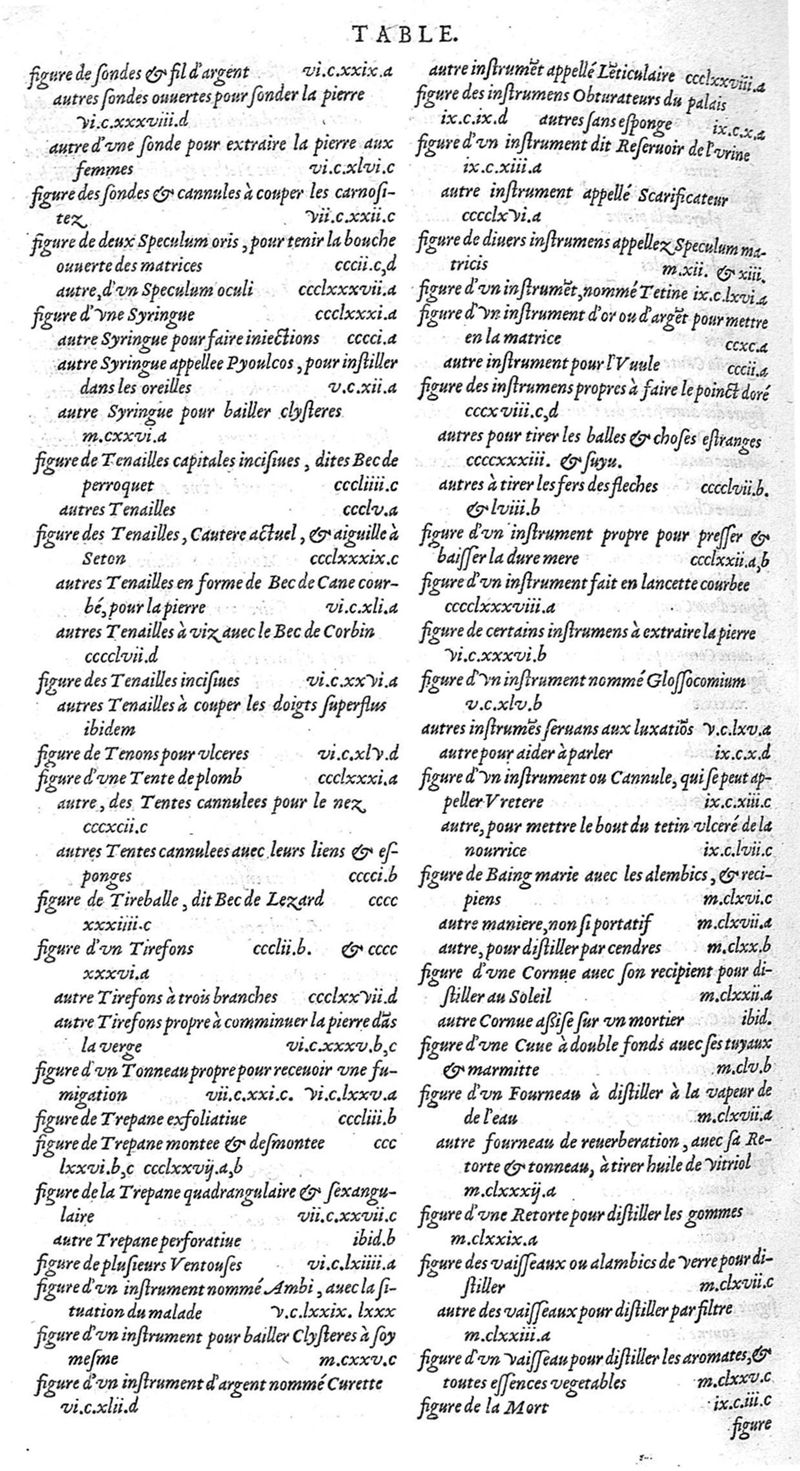 TABLE.
figure de ſondes & fil d'argent vi.c.xxix.a
autres ſondes ouuertes pour ſonder la pierre
vi.c.xxxviii.d
autre d'vne ſonde pour extraire la pierre aux
femmes vi.c.xlvi.c
figure des ſondes & cannules à couper les carnoſi-
tez vii.c.xxii.c
figure de deux Speculum oris, pour tenir la bouche
ouuerte des matrices cccii.c,d
autre, d'vn Speculum oculi ccclxxxvii.a
figure d'vne Syringue ccclxxxi.a
autre Syringue pour faire iniections cccci.a
autre Syringue appellee Pyoulcos, pour inſtiller
dans les oreilles v.c.xii.a
autre Syringue pour bailler clyſteres
m.cxxvi.a
figure de Tenailles capitales inciſiues, dites Bec de
perroquet cccliiii.c
autres Tenailles ccclv.a
figure des Tenailles, Cautere actuel, & aiguille à
Seton ccclxxxix.c
autres Tenailles en forme de Bec de Cane cour-
bé, pour la pierre vi.c.xli.a
autres Tenailles à viz auec le Bec de Corbin
cccclvii.d
figure des Tenailles inciſiues vi.c.xxvi.a
autres Tenailles à couper les doigts ſuperflus
ibidem
figure de Tenons pour vlceres vi.c.xlv.d
figure d'vne Tente de plomb ccclxxxi.a
autre, des Tentes cannulees pour le nez
cccxcii.c
autres Tentes cannulees auec leurs liens & eſ-
ponges cccci.b
figure de Tireballe, dit Bec de Lezard cccc
xxxiiii.c
figure d'vn Tirefons ccclii.b. & cccc
xxxvi.a
autre Tirefons à trois branches ccclxxvii.d
autre Tirefons propre à comminuer la pierre dãs
la verge vi.c.xxxv.b,c
figure d'vn Tonneau propre pour receuoir vne fu-
migation vii.c.xxi.c. vi.c.lxxv.a
figure de Trepane exfoliatiue cccliii.b
figure de Trepane montee & deſmontee ccc
lxxvi.b,c ccclxxvij.a,b
figure de la Trepane quadrangulaire & ſexangu-
laire vii.c.xxvii.c
autre Trepane perforatiue ibid.b
figure de pluſieurs Ventouſes vi.c.lxiiii.a
figure d'vn inſtrument nommé Ambi, auec la ſi-
tuation du malade v.c.lxxix. lxxx
figure d'vn inſtrument pour bailler Clyſteres à ſoy
meſme m.cxxv.c
figure d'vn inſtrument d'argent nommé Curette
vi.c.xlii.d
autre inſtrumẽt appellé Lẽticulaire ccclxxviii.a
figure des inſtrumens Obturateurs du palais
ix.c.ix.d autres ſans eſponge ix.c.x.a
figure d'vn inſtrument dit Reſeruoir de l'vrine
ix.c.xiii.a
autre inſtrument appellé Scarificateur
cccclxvi.a
figure de diuers inſtrumens appellez Speculum ma-
tricis m.xii. & xiii.
figure d'vn inſtrumẽt, nommé Tetine ix.c.lxvi.a
figure d'vn inſtrument d'or ou d'argẽt pour mettre
en la matrice ccxc.a
autre inſtrument pour l'Vuule cccii.a
figure des inſtrumens propres à faire le poinct doré
cccxviii.c,d
autres pour tirer les balles & choſes eſtranges
ccccxxxiii. & ſuyu.
autres à tirer les fers des fleches cccclvii.b.
& lviii.b
figure d'vn inſtrument propre pour preſſer &
baiſſer la dure mere ccclxxii.a,b
figure d'vn inſtrument fait en lancette courbee
cccclxxxviii.a
figure de certains inſtrumens à extraire la pierre
vi.c.xxxvi.b
figure d'vn inſtrument nommé Gloſſocomium
v.c.xlv.b
autres inſtrumẽs ſeruans aux luxatiõs v.c.lxv.a
autre pour aider à parler ix.c.x.d
figure d'vn inſtrument ou Cannule, qui ſe peut ap-
peller Vretere ix.c.xiii.c
autre, pour mettre le bout du tetin vlceré de la
nourrice ix.c.lvii.c
figure de Baing marie auec les alembics, & reci-
piens m.clxvi.c
autre maniere, non ſi portatif m.clxvii.a
autre, pour diſtiller par cendres m.clxx.b
figure d'vne Cornue auec ſon recipient pour di-
ſtiller au Soleil m.clxxii.a
autre Cornue aßiſe ſur vn mortier ibid.
figure d'vne Cuue à double fonds auec ſes tuyaux
& marmitte m.clv.b
figure d'vn Fourneau à diſtiller à la vapeur de
de l'eau m.clxvii.a
autre fourneau de reuerberation, auec ſa Re-
torte & tonneau, à tirer huile de vitriol
m.clxxxij.a
figure d'vne Retorte pour diſtiller les gommes
m.clxxix.a
figure des vaiſſeaux ou alambics de verre pour di-
ſtiller m.clxvii.c
autre des vaiſſeaux pour diſtiller par filtre
m.clxxiii.a
figure d'vn vaiſſeau pour diſtiller les aromates, &
toutes eſſences vegetables m.clxxv.c
figure de la Mort ix.c.iii.c
figure